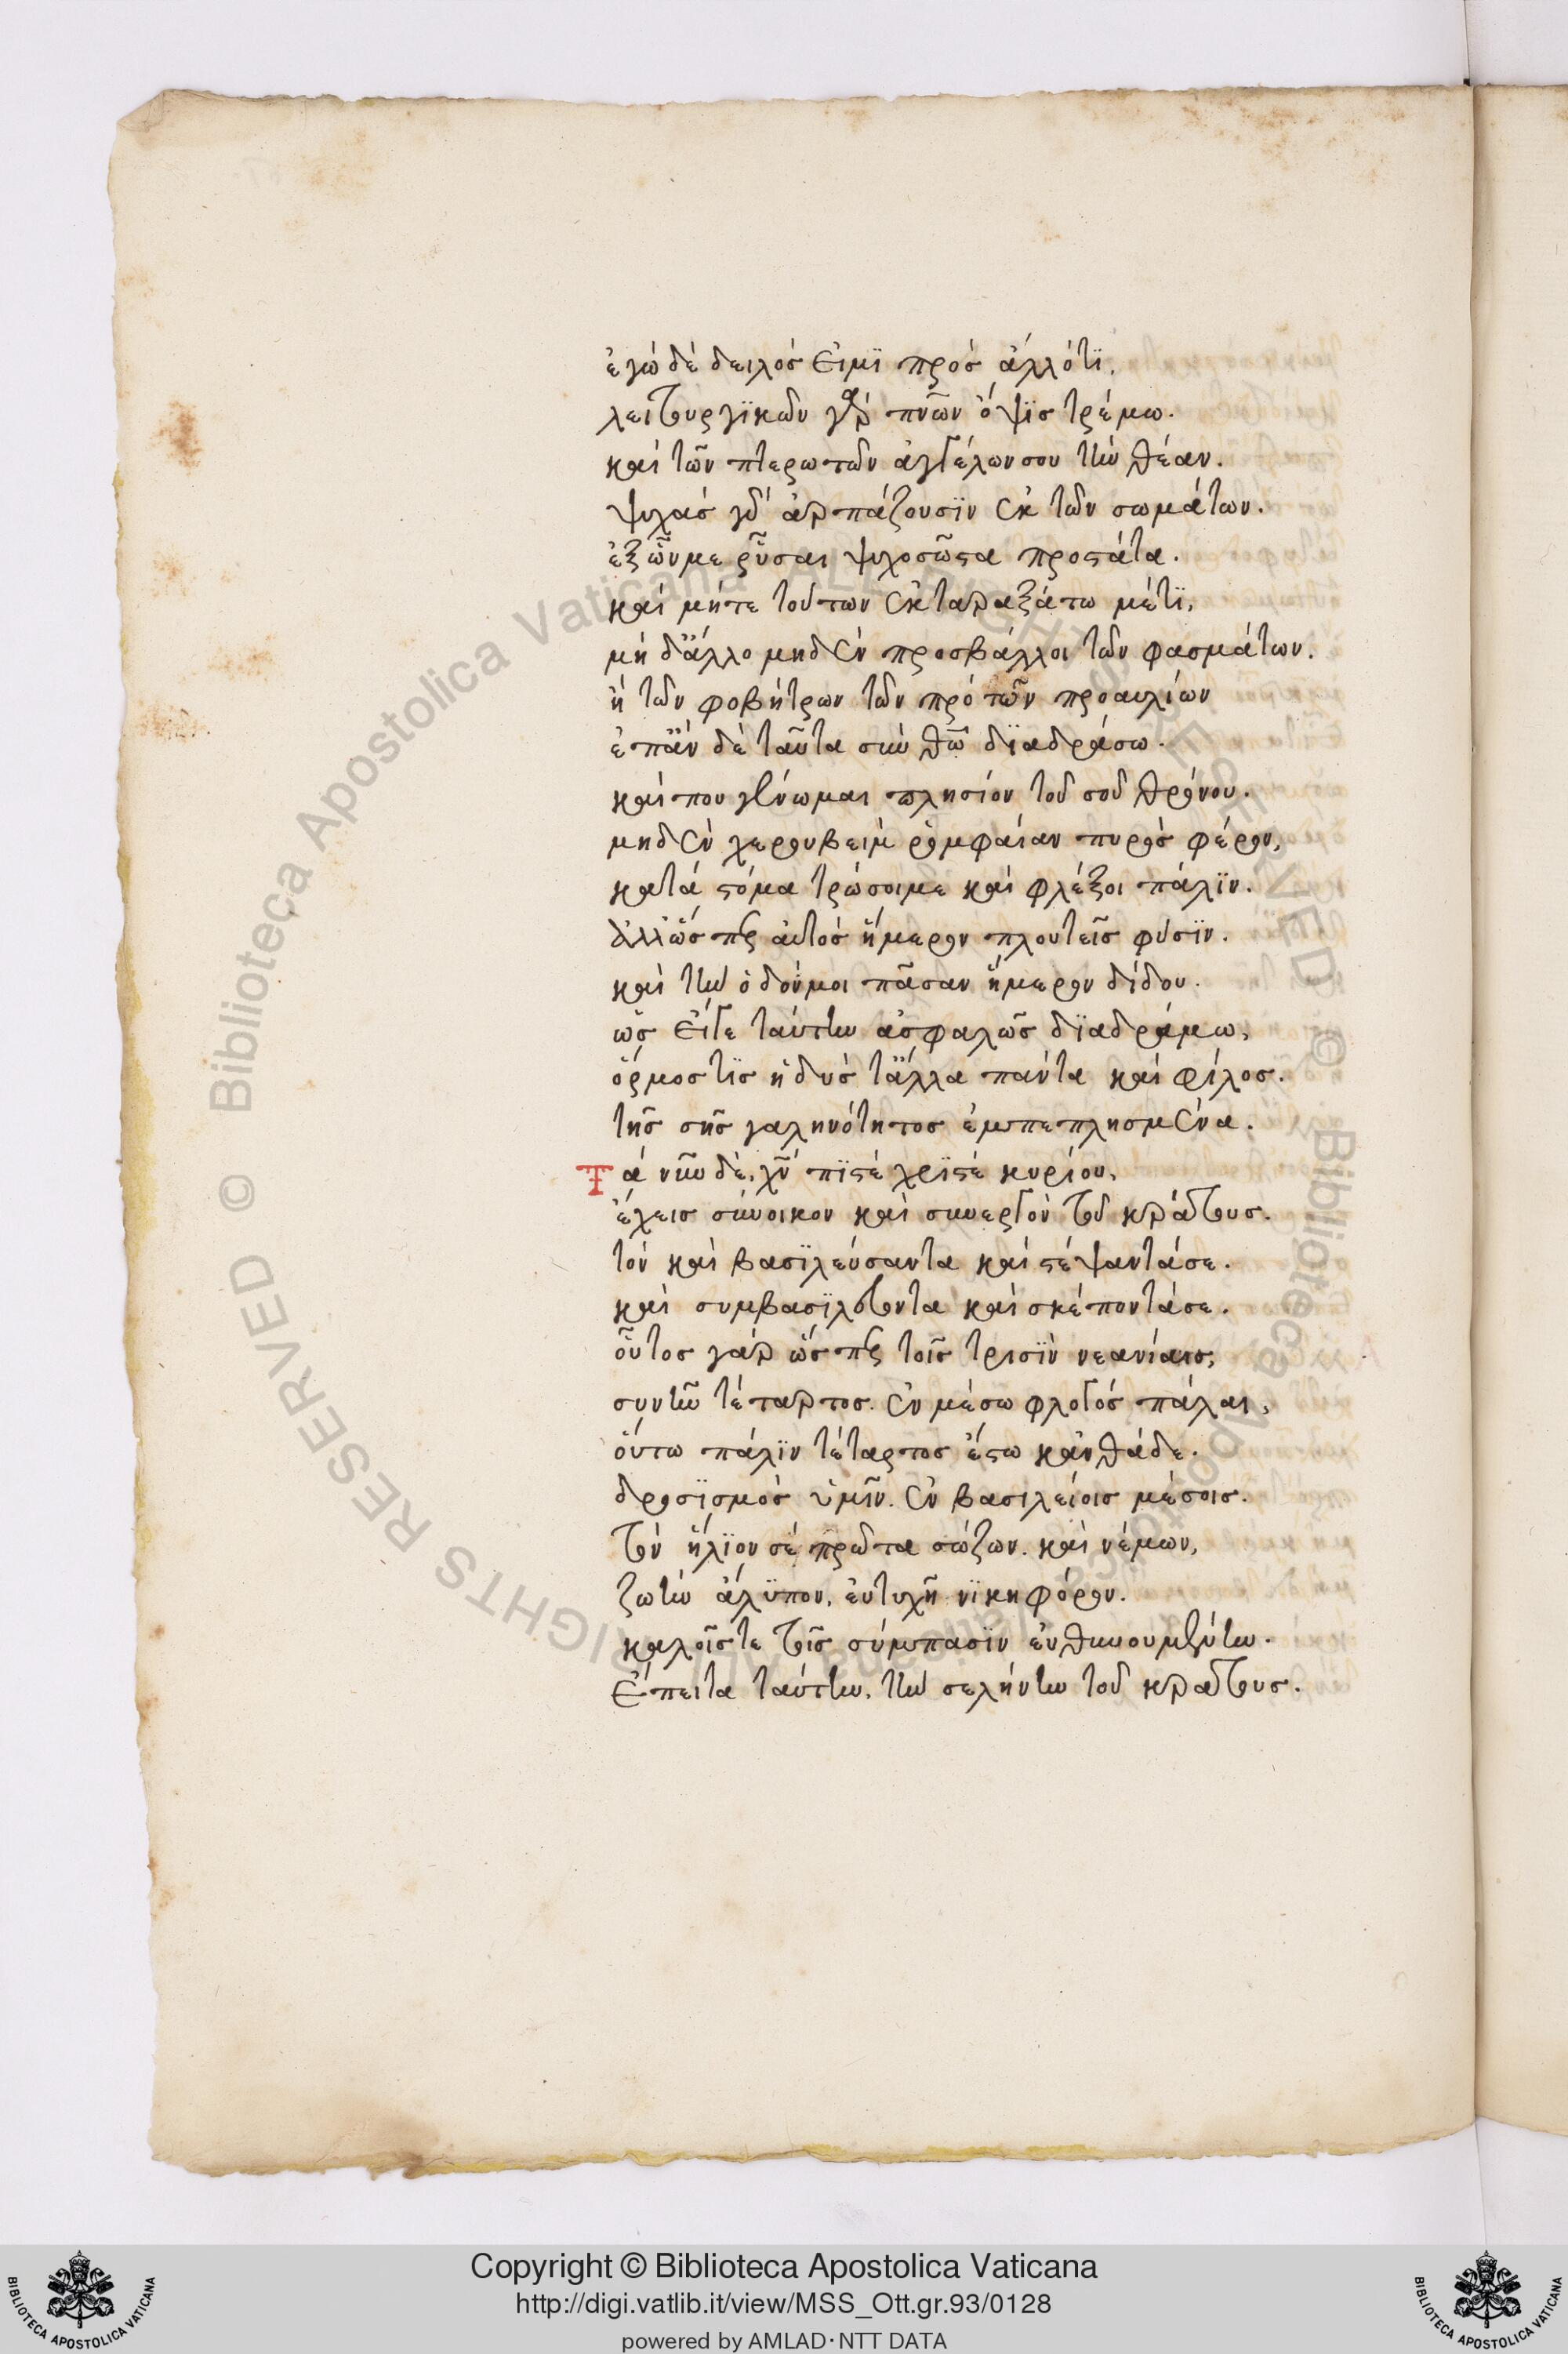 ἐγὼ δὲ δειλός εἰμϊ πρὸς ἀλλό τϊ,
λειτουργϊκῶν γὰρ πνων ὄψϊς τρέμω.
καὶ τῶν πτερωτῶν ἀγγέλων σου τὴν θέαν.
ψυχὰς γὰρ ἁρπάζουσϊν ἐκ τῶν σωμάτων.
ἐξ ὧν με ῥῦσαι ψυχοσῶστα προστάτα.
καὶ μήτε τούτων ἐκταραξάτω μέ τϊ,
μὴ δ' ἄλλο μηδὲν προσβάλλοι τῶν φασμάτων.
ἢ τῶν φοβήτρων τῶν πρὸ τῶν προαυλίων
ἐπὰν δὲ ταῦτα σὺν θω δϊαδράσω.
καί που γένωμαι πλησίον τοῦ σοῦ θρόνου.
μηδὲν χερουβεὶμ ῥομφαίαν πυρὸς φέρον,
κατὰ στόμα τρώσοι με καὶ φλέξοι πάλϊν.
ἀλλ' ὥσπερ αὐτὸς ἥμερον πλουτεῖς φύσϊν.
καὶ τὴν ὁδόν μοι πᾶσαν ἥμερον δίδου.
ὡς εἴγε ταύτην ἀσφαλῶς δϊαδράμω,
ὅρμος τϊς ἡδὺς τἄλλα πάντα καὶ φίλος.
τῆς σῆς γαληνότητος ἐμπεπλησμένα.
Τὰ νῦν δὲ, χυ πϊστὲ χρϊστὲ κυρίου,
ἔχεις σύνοικον καὶ συνεργὸν τοῦ κράτους.
τὸν καὶ βασϊλεύσαντα καὶ στέψαντά σε.
καὶ συμβασϊλεύοντα καὶ σκέποντά σε.
οὗτος γὰρ ὥσπερ τοῖς τρισϊν νεανίαις,
συνῆν τέταρτος. ἐν μέσω φλογὸς πάλαι,
οὕτω πάλϊν τέταρτος ἔστω κἀνθάδε.
δροσϊσμὸς ὑμῖν. ἐν βασιλείοις μέσοις.
τὸν ἥλϊον σὲ πρῶτα σώζων. καὶ νέμων,
ζωὴν ἄλϋπον, εὐτυχῆ νϊκηφόρον.
καλοῖς τε τοῖς σύμπασϊν εὐθηνουμένην.
Ἔπειτα ταύτην, τὴν σελήνην τοῦ κράτους.
Copyright © Biblioteca Apostolica Vaticana
http://digi.vatlib.it/view/MSS_Ott.gr.93/0128
powered by AMLAD·NTT DATA
BIBLIOTECA APOSTOLICA VATICANA
BIBLIOTECA APOSTOLICA VATICANA
© Biblioteca Apostolica Vaticana ALL RIGHTS RESERVED
© Biblioteca Apostolica Vaticana ALL RIGHTS RESERVED